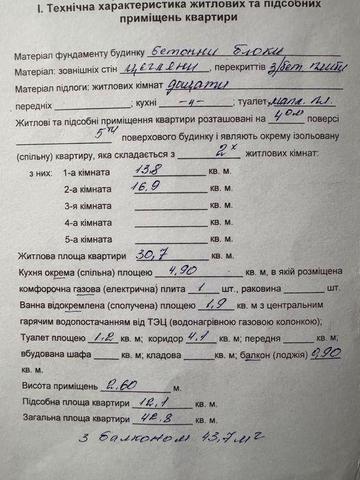 І. Технічна характеристика житлових та підсобних
приміщень квартири
Матеріал фундаменту будинку бетонни блоки
Матеріал: зовнішніх стін цегляни, перекриттів з/бет. плити
Матеріал підлоги: житлових кімнат дощати
передніх ; кухні -"- ; туалет мапл. пл.
Житлові та підсобні приміщення квартири розташовані на 4ом поверсі
5ти поверхового будинку і являють окрему ізольовану
(спільну) квартиру, яка складається з 2х житлових кімнат:
з них: 1-а кімната 13.8 кв. м.
2-а кімната 16,9 кв. м.
3-я кімната кв. м.
4-а кімната кв. м.
5-а кімната кв. м.
Житлова площа квартири 30,7 кв. м.
Кухня окрема (спільна) площею 4,90 кв. м, в якій розміщена
комфорочна газова (електрична) плита 1 шт., раковина шт.
Ванна відокремлена (сполучена) площею 1,9 кв. м з центральним
гарячим водопостачанням від ТЭЦ (водонагрівною газовою колонкою);
Туалет площею 1.2 кв. м; коридор 4.1 кв. м; передня кв. м;
вбудована шафа кв. м; кладова кв. м; балкон (лоджія) 0,90
кв. м.
Висота приміщень 2.60 м.
Підсобна площа квартири 12,1 кв. м.
Загальна площа квартири 42.8 кв. м.
з балконом 43,7м²